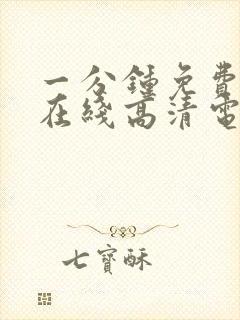 一分鍾免費
在綫高清電
七寶酥